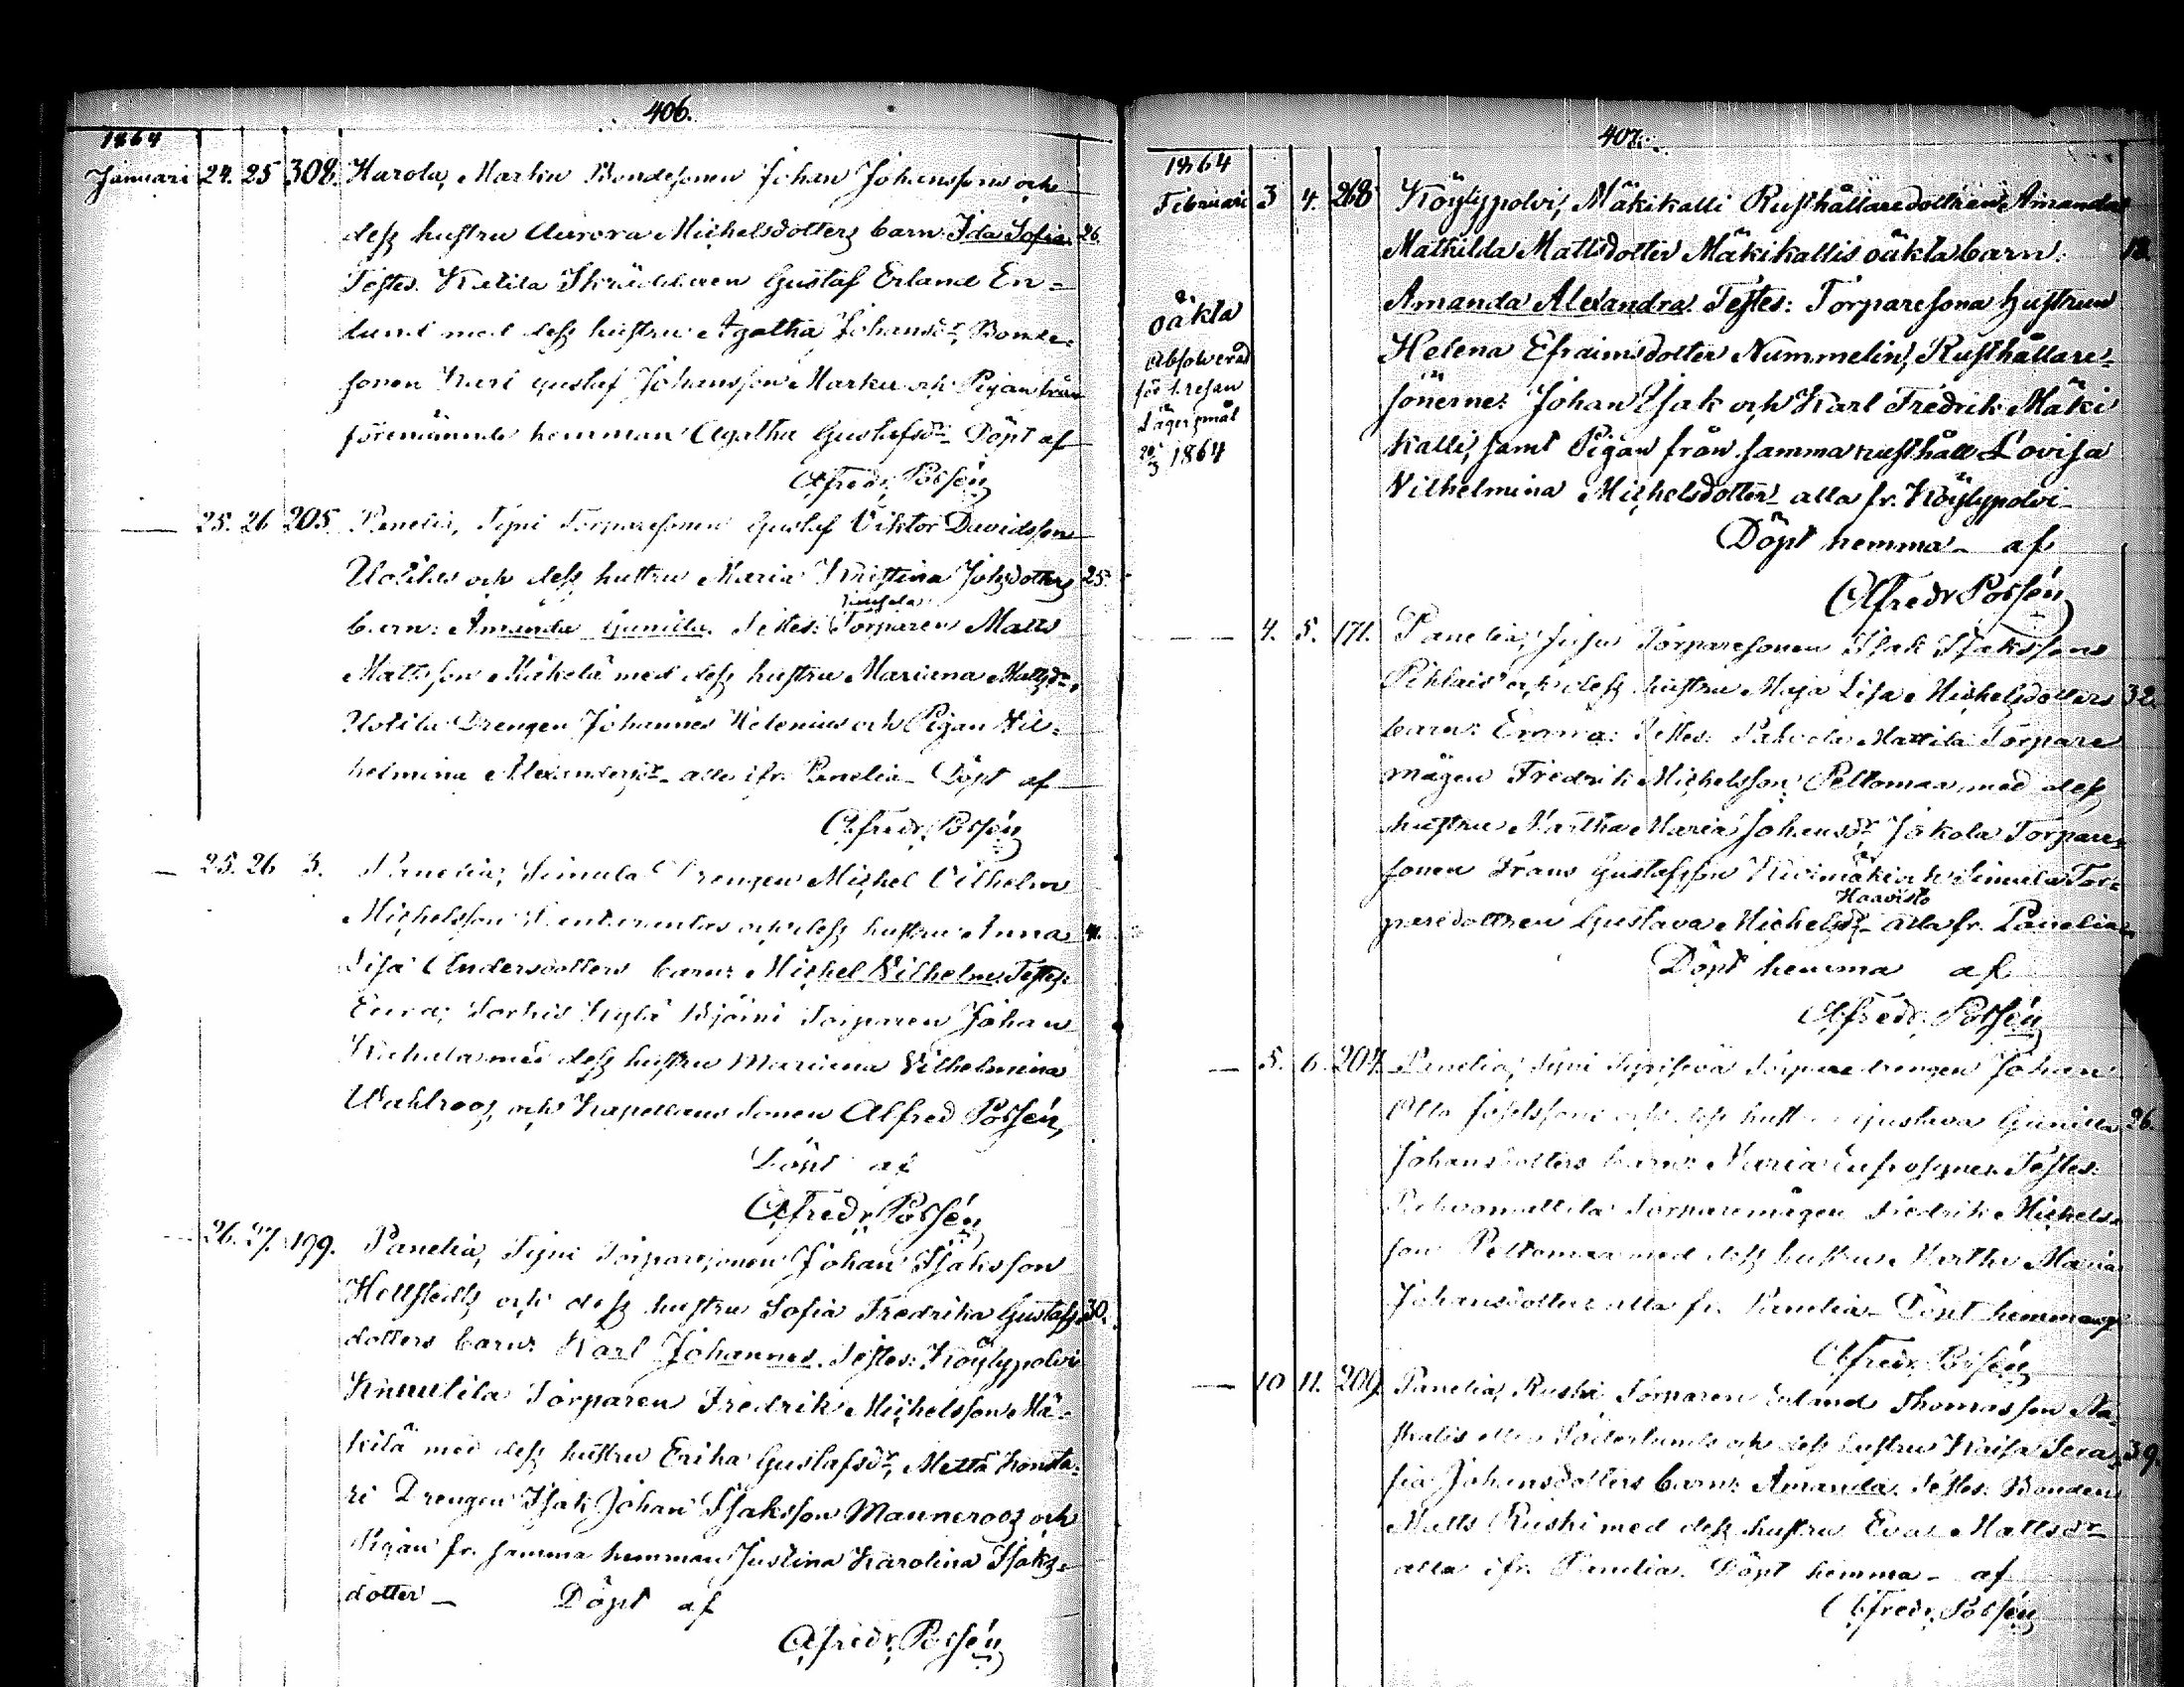 406.
1864
Januari 24. 25 308. Harola, Marku Bondesonen Johan Johanssons och
dess hustru Aurora Michelsdotters barn: Ida Sofia. 26.
Testes. Gustaf Erland En-
lund med dess hustru Agatha Johansdr, Bonde-
sonen Karl Gustaf Johansson Marku och Pigan från
förenämnde hemman Agatha Gustafsdr. Döpt af
Alfredr. Possén
25. 26 205. Panelia, Tyni Torparesonen Gustaf Viktor Davidsson
Uotilas och dess hustru Maria Kristina Johsdotters 25.
barn: Amanda Gunilla. Testes: Torparen Matts
Mattsson Mickelä med dess hustru Mariana Mattsdr,
Uotila Drengen Johannes Helenius och Pigan Vil-
helmina Alexandersdr. alla ifr. Panelia. Döpt af
Alfredr. Possén
25. 26 3. Panelia, Simula Drengen Michel Vilhelm
Michelsson och dess hustru Anna 41.
Lisa Andersdotters barn: Michel Vilhelm. Testes:
Eura, Sorkis Kylä Björni Torparen Johan
med dess hustru Mariana Vilhelmina
Wahlroos, och Kapellans Sonen Alfred Possén,
Döpt af
Alfredr. Possén
26. 27. 199. Panelia, Tyni Torparesonen Johan Isaksson
Hellstedts och dess hustru Sofia Fredrika Gustafs- 30.
dotters barn: Karl Johannes. Testes: Köylypolvi
Knuutila Torparen Fredrik Michelsson Mä-
kilä med dess hustru Erika Gustafsdr, Mettä Konsta-
ri Drengen Isak Johan Isaksson Mauneroos och
Pigan fr. samma hemman Justina Karolina Isaks-
dotter — Döpt af
Alfredr. Possén
407.
1864
Februari 3 4. 268 Köylypolvi, Mäkikalli Rusthållaredottren Amanda
Mathilda Mattsdotter Mäkikallis oäkta barn: 18.
oäkta
Absolverad
för
Lägersmål
20/3 1864
Amanda Alexandra. Testes: Torparesona hustrun
Helena Efraimsdotter Nummelin, Rusthållare-
sönerne: Johan Isak och Karl Fredrik Mäki
kalli, samt Pigan från samma rusthåll Lovisa
Vilhelmina Michelsdotter alla fr. Köylypolvi
Döpt hemma af
Alfredr Possén
4. 5. 171. Panelia, Torparesonen Isak Isakssons
Pihlais och dess hustru Maja Lisa Michelsdotters 32.
barn: Emma: Testes: Mattila Torpare
mågen Fredrik Michelsson Peltomaa med dess
hustru Martha Maria Johansdr, Jokola Torpare-
sonen Frans Gustafsson Kivimäki och Simula Tor-
Haavisto
paredottren Gustava Michelsdr alla fr. Panelia
Döpt hemma af
Alfredr. Possén
5. 6. 204. Panelia, Tyni Torparedrengen Johan
Otto Josefssons och dess hustru Gustava Gunilla 26.
Johansdotters barn: Maria Eufrosyne. Testes:
Torparemågen Fredrik Michels-
son Peltomaa med dess hustru Martha Maria
Johansdotter alla fr. Panelia. Döpt hemma af
Alfredr. Possén
10 11. 209. Panelia, Ruski Torparen Erland Thomasson
eller Söderlunds och dess hustru Kaisa Sera- 39.
fia Johansdotters barn: Amanda. Testes: Bonden
Matts Ruski med dess hustru Eva Mattsdr
alla ifr. Panelia. Döpt hemma af
Alfredr. Possén